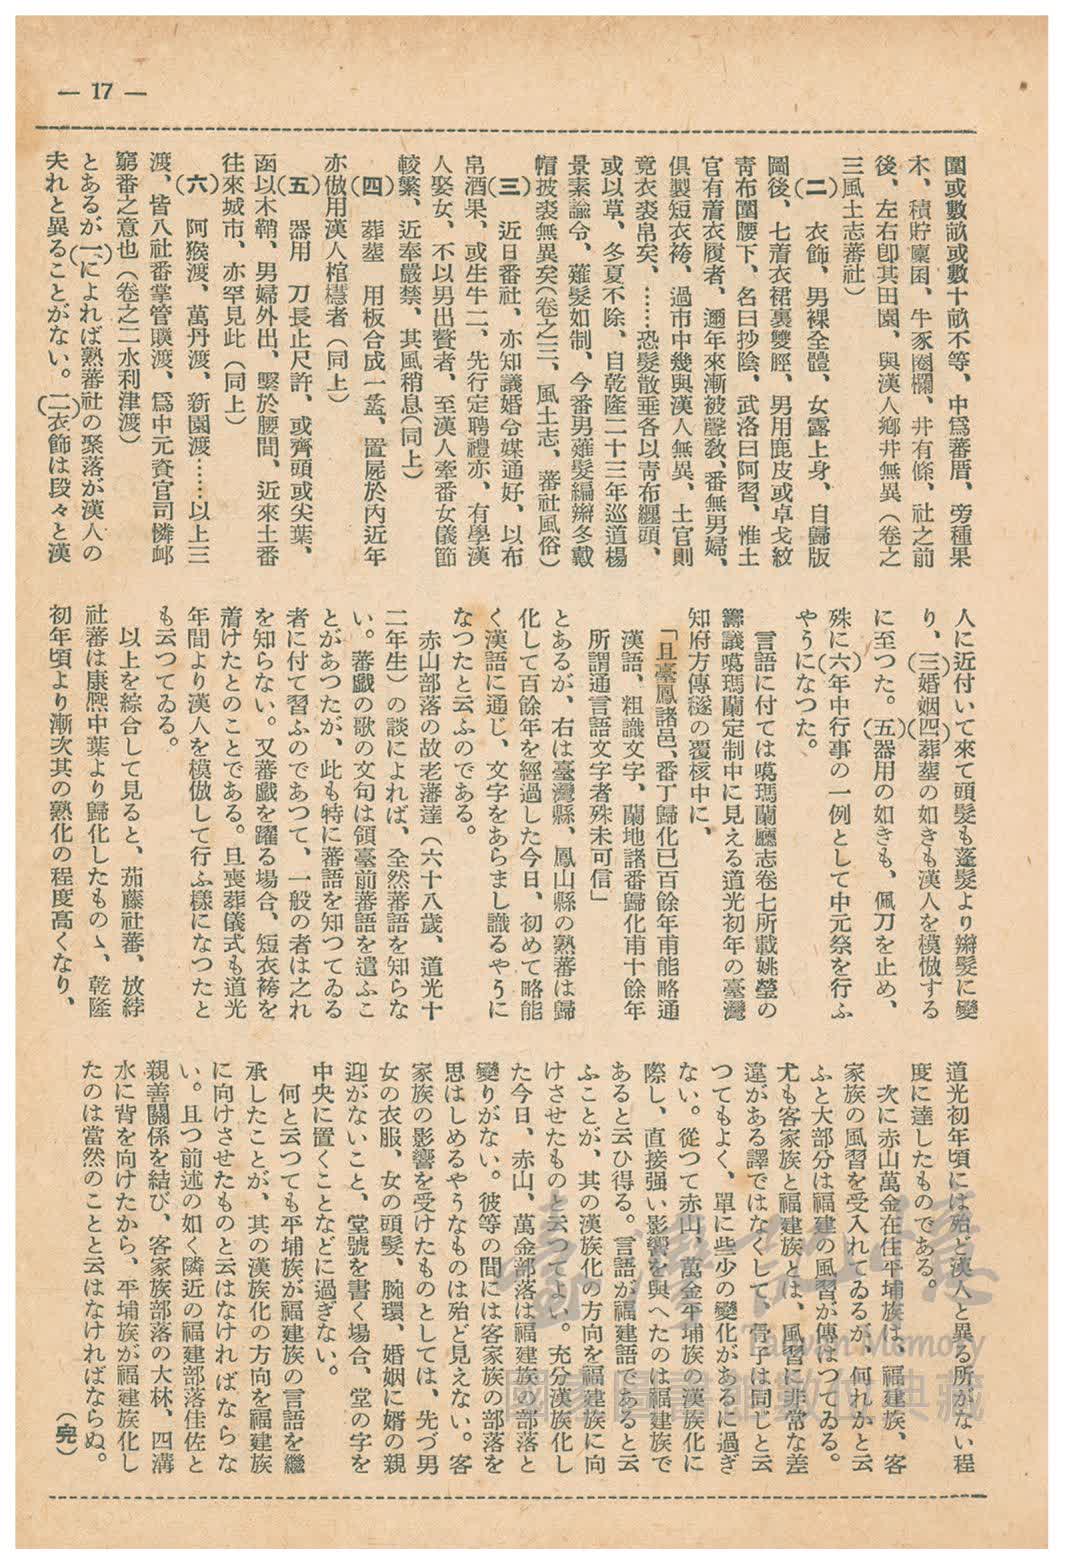 — 17 —
圍或數畝或數十畝不等、中爲蕃厝、旁種果
木、積貯稟囷、牛豕圈欄、井有條、社之前
後、左右卽其田園、與漢人鄉井無異（卷之
三風土志蕃社）
（二）　衣飾、男裸全體、女露上身、自歸版
圖後、七着衣裙裹雙脛、男用鹿皮或卓戈紋
靑布圍腰下、名曰抄陰、武洛曰阿習、惟土
官有着衣履者、邇年來漸被聲敎、番無男婦、
俱製短衣袴、過市中幾與漢人無異、土官則
竟衣裘帛矣、……恐髮散垂各以靑布纒頭、
或以草、冬夏不除、自乾隆二十三年巡道楊
景素諭令、薙髮如制、今番男薙髮編辮冬戴
帽披裘無異矣（卷之三、風土志、蕃社風俗）
（三）　近日番社、亦知議婚令媒通好、以布
帛酒果、或生牛二、先行定聘禮亦、有學漢
人娶女、不以男出贅者、至漢人牽番女儀節
較繁、近奉嚴禁、其風稍息（同上）
（四）　葬塟　用板合成一盔、置屍於內近年
亦倣用漢人棺槥者（同上）
（五）　器用　刀長止尺許、或齊頭或尖葉、
函以木鞘、男婦外出、繫於腰間、近來土番
往來城市、亦罕見此（同上）
（六）　阿猴渡、萬丹渡、新園渡……以上三
渡、皆八社番掌管贌渡、爲中元資官司憐邺
窮番之意也（卷之二水利津渡）
とあるが（一）によれば熟蕃社の聚落が漢人の
夫れと異ることがない。（二）衣飾は段々と漢
人に近付いて來て頭髮も蓬髮より辮髮に變
り、（三）婚姻（四）葬塟の如きも漢人を模倣する
に至つた。（五）器用の如きも、佩刀を止め、
殊に（六）年中行事の一例として中元祭を行ふ
やうになつた。
言語に付ては噶瑪蘭廳志卷七所載姚瑩の
籌議噶瑪蘭定制中に見える道光初年の臺灣
知府方傳穟の覆核中に、
「且臺鳳諸邑、番丁歸化已百餘年甫能略通
漢語、粗識文字、蘭地諸番歸化甫十餘年
所謂通言語文字者殊未可信」
とあるが、右は臺灣縣、鳳山縣の熟蕃は歸
化して百餘年を經過した今日、初めて略能
く漢語に通じ、文字をあらまし識るやうに
なつたと云ふのである。
赤山部落の故老潘達（六十八歲、道光十
二年生）の談によれば、全然蕃語を知らな
い。蕃戲の歌の文句は領臺前蕃語を遣ふこ
とがあつたが、此も特に蕃語を知つてゐる
者に付て習ふのであつて、一般の者は之れ
を知らない。又蕃戲を躍る場合、短衣袴を
着けたとのことである。且喪葬儀式も道光
年間より漢人を模倣して行ふ樣になつたと
も云つてゐる。
以上を綜合して見ると、茄藤社蕃、放𦂁
社蕃は康熈中葉より歸化したものゝ、乾隆
初年頃より漸次其の熟化の程度高くなり、
道光初年頃には殆ど漢人と異る所がない程
度に達したものである。
次に赤山萬金在住平埔族は、福建族、客
家族の風習を受入れてゐるが、何れかと云
ふと大部分は福建の風習が傳はつてゐる。
尤も客家族と福建族とは、風習に非常な差
違がある譯ではなくして、骨子は同じと云
つてもよく、單に些少の變化があるに過ぎ
ない。從つて赤山、萬金平埔族の漢族化に
際し、直接强い影響を與へたのは福建族で
あると云ひ得る。言語が福建語であると云
ふことが、其の漢族化の方向を福建族に向
けさせたものと云つてよい。充分漢族化し
た今日、赤山、萬金部落は福建族の部落と
變りがない。彼等の間には客家族の部落を
思はしめるやうなものは殆ど見えない。客
家族の影響を受けたものとしては、先づ男
女の衣服、女の頭髮、腕環、婚姻に婿の親
迎がないこと、堂號を書く場合、堂の字を
中央に置くことなどに過ぎない。
何と云つても平埔族が福建族の言語を繼
承したことが、其の漢族化の方向を福建族
に向けさせたものと云はなければならな
い。且つ前述の如く隣近の福建部落佳佐と
親善關係を結び、客家族部落の大林、四溝
水に背を向けたから、平埔族が福建族化し
たのは當然のことと云はなければならぬ。
（完）
臺灣記憶
Taiwan Memory
國家圖書館數位典藏